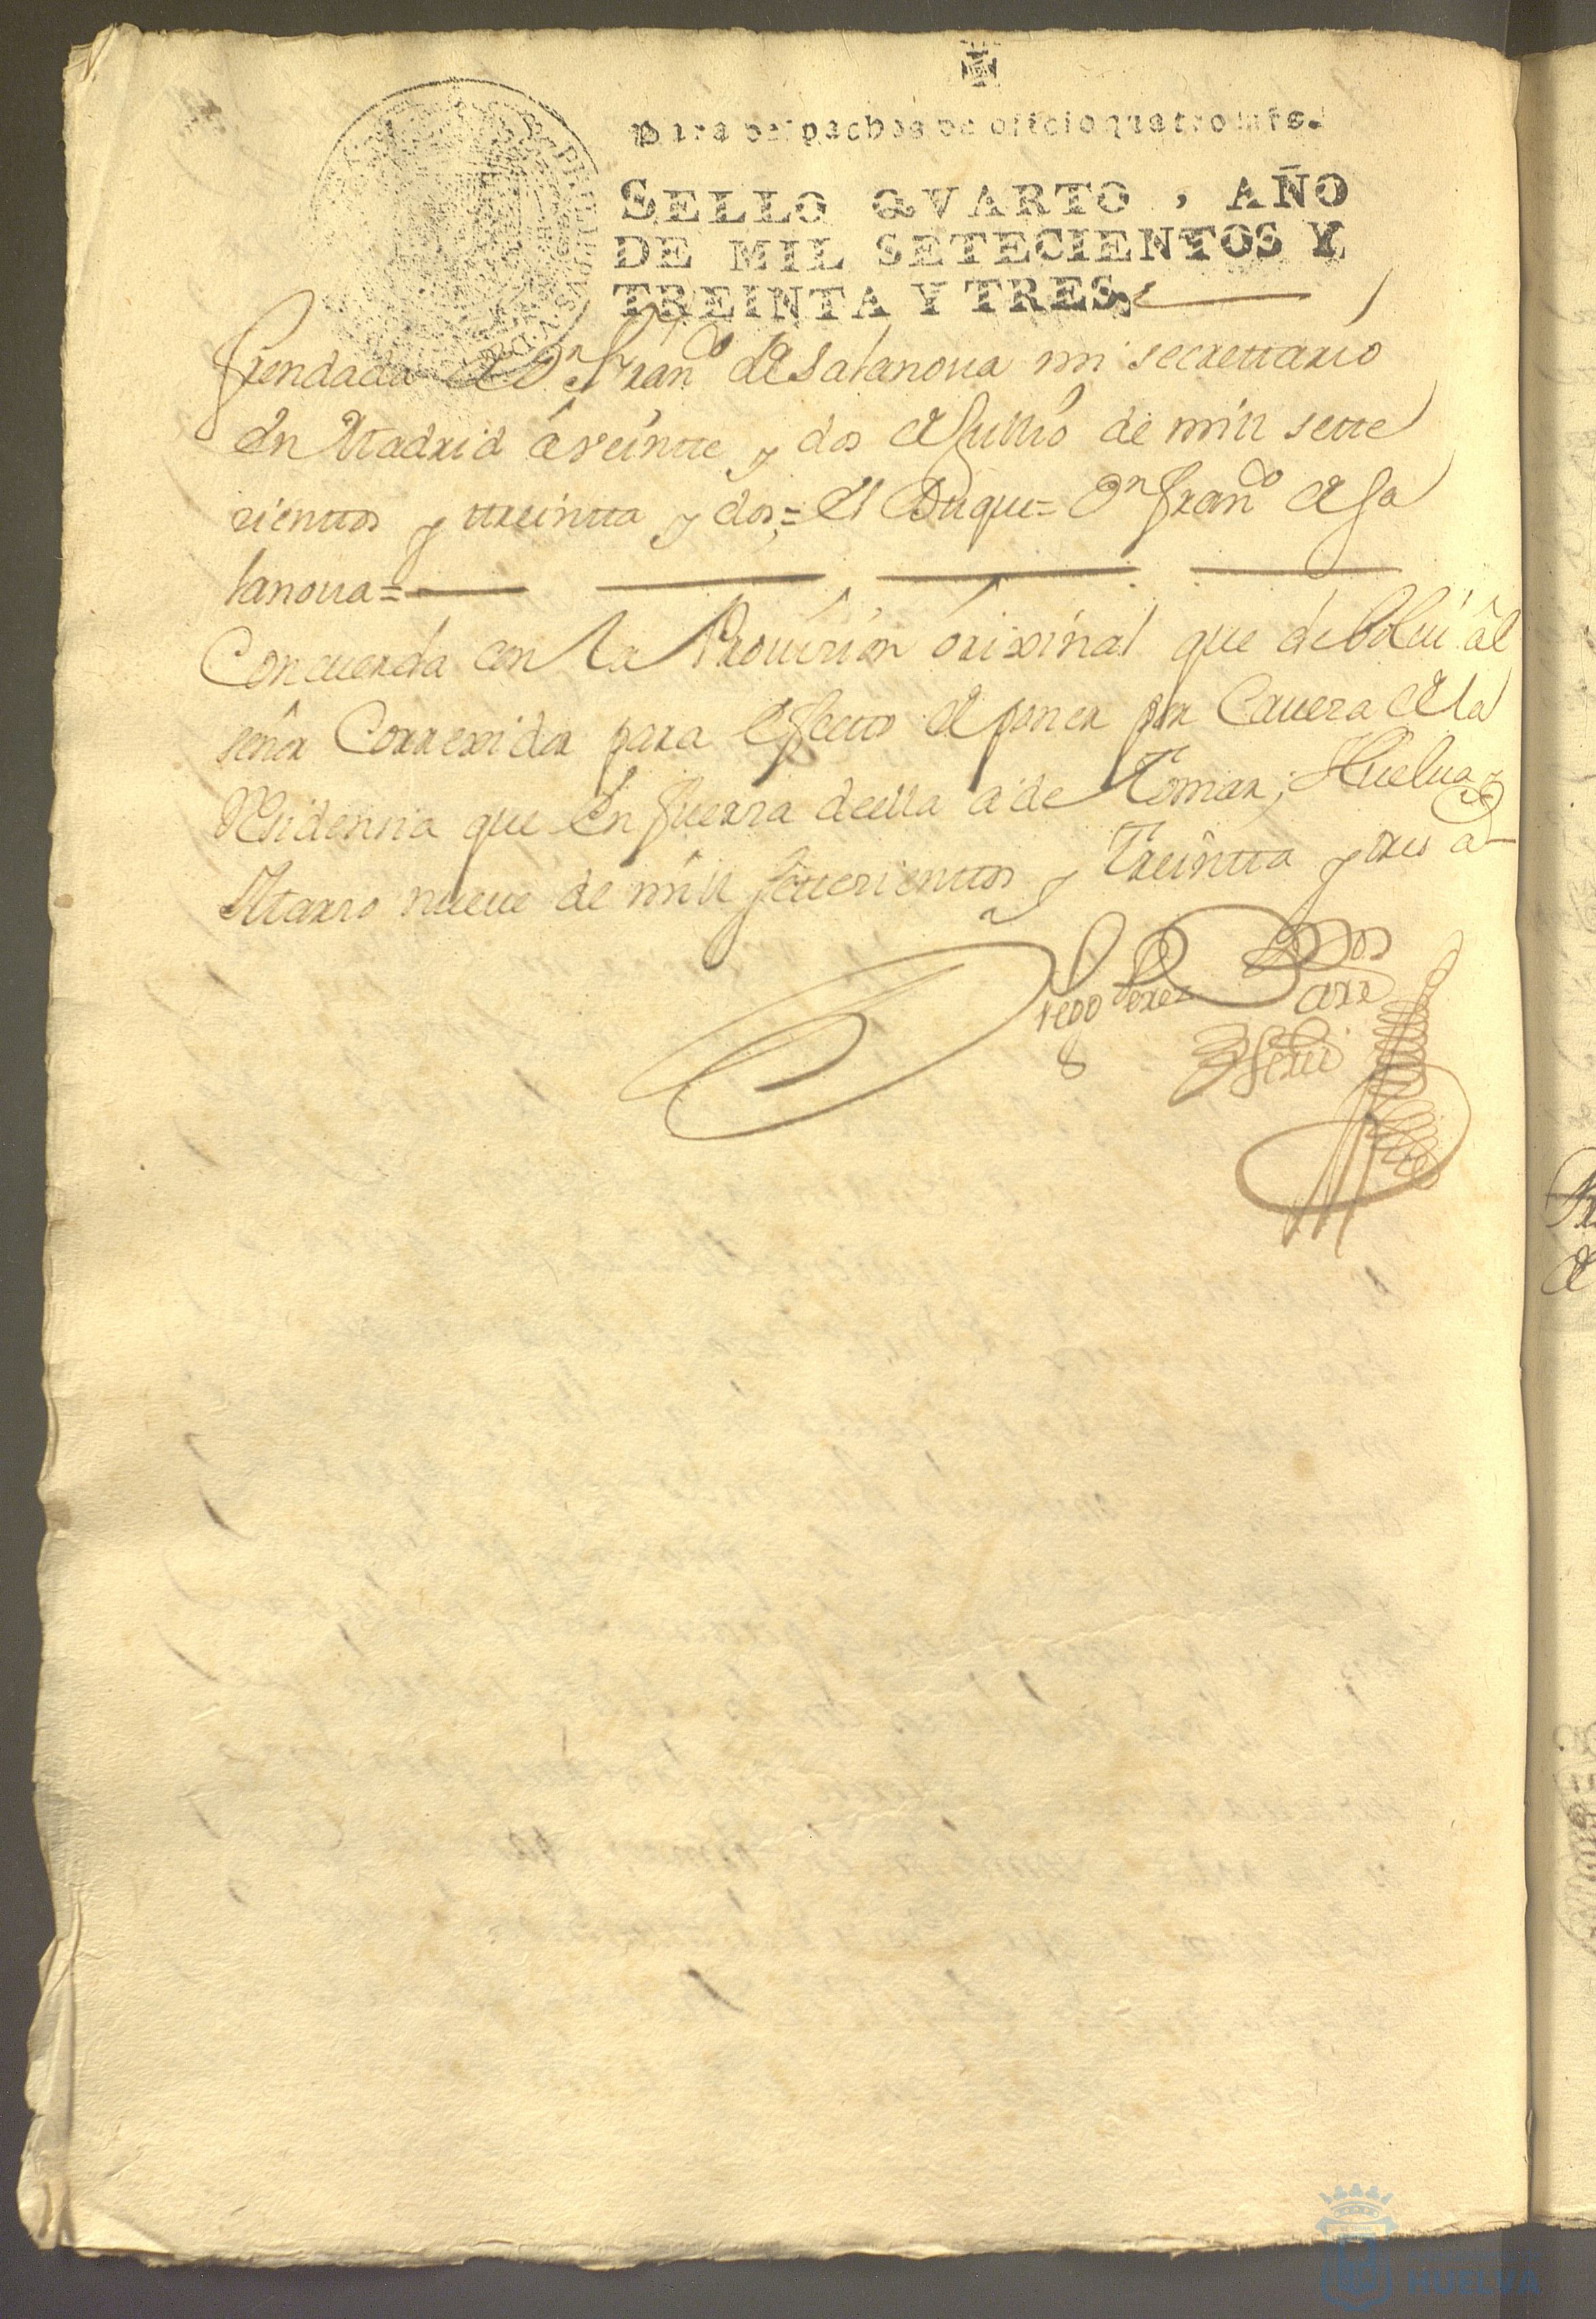 Para despachos de oficio quatro mrs.
SELLO QVARTO, AÑO
DE MIL SETECIENTOS Y
TREINTA Y TRES,
frendada de Dn. Franco de Salanoua mi secrettario
En Madrid â veintte y dos de Junio de mill sette
cienttos y ttreintta y dos,= El Duque= Dn. Franco de Sa
lanoua=
Concuerda con la Prouision orixinal que debolui âl
señor Correxidor para efectto de poner por Cauera de la
Residencia que en fuerza de ella a de Tomar; Huelua y
Marzo nueue de mill settecienttos y Treintta y tres a
Diego Perez
HUELVA